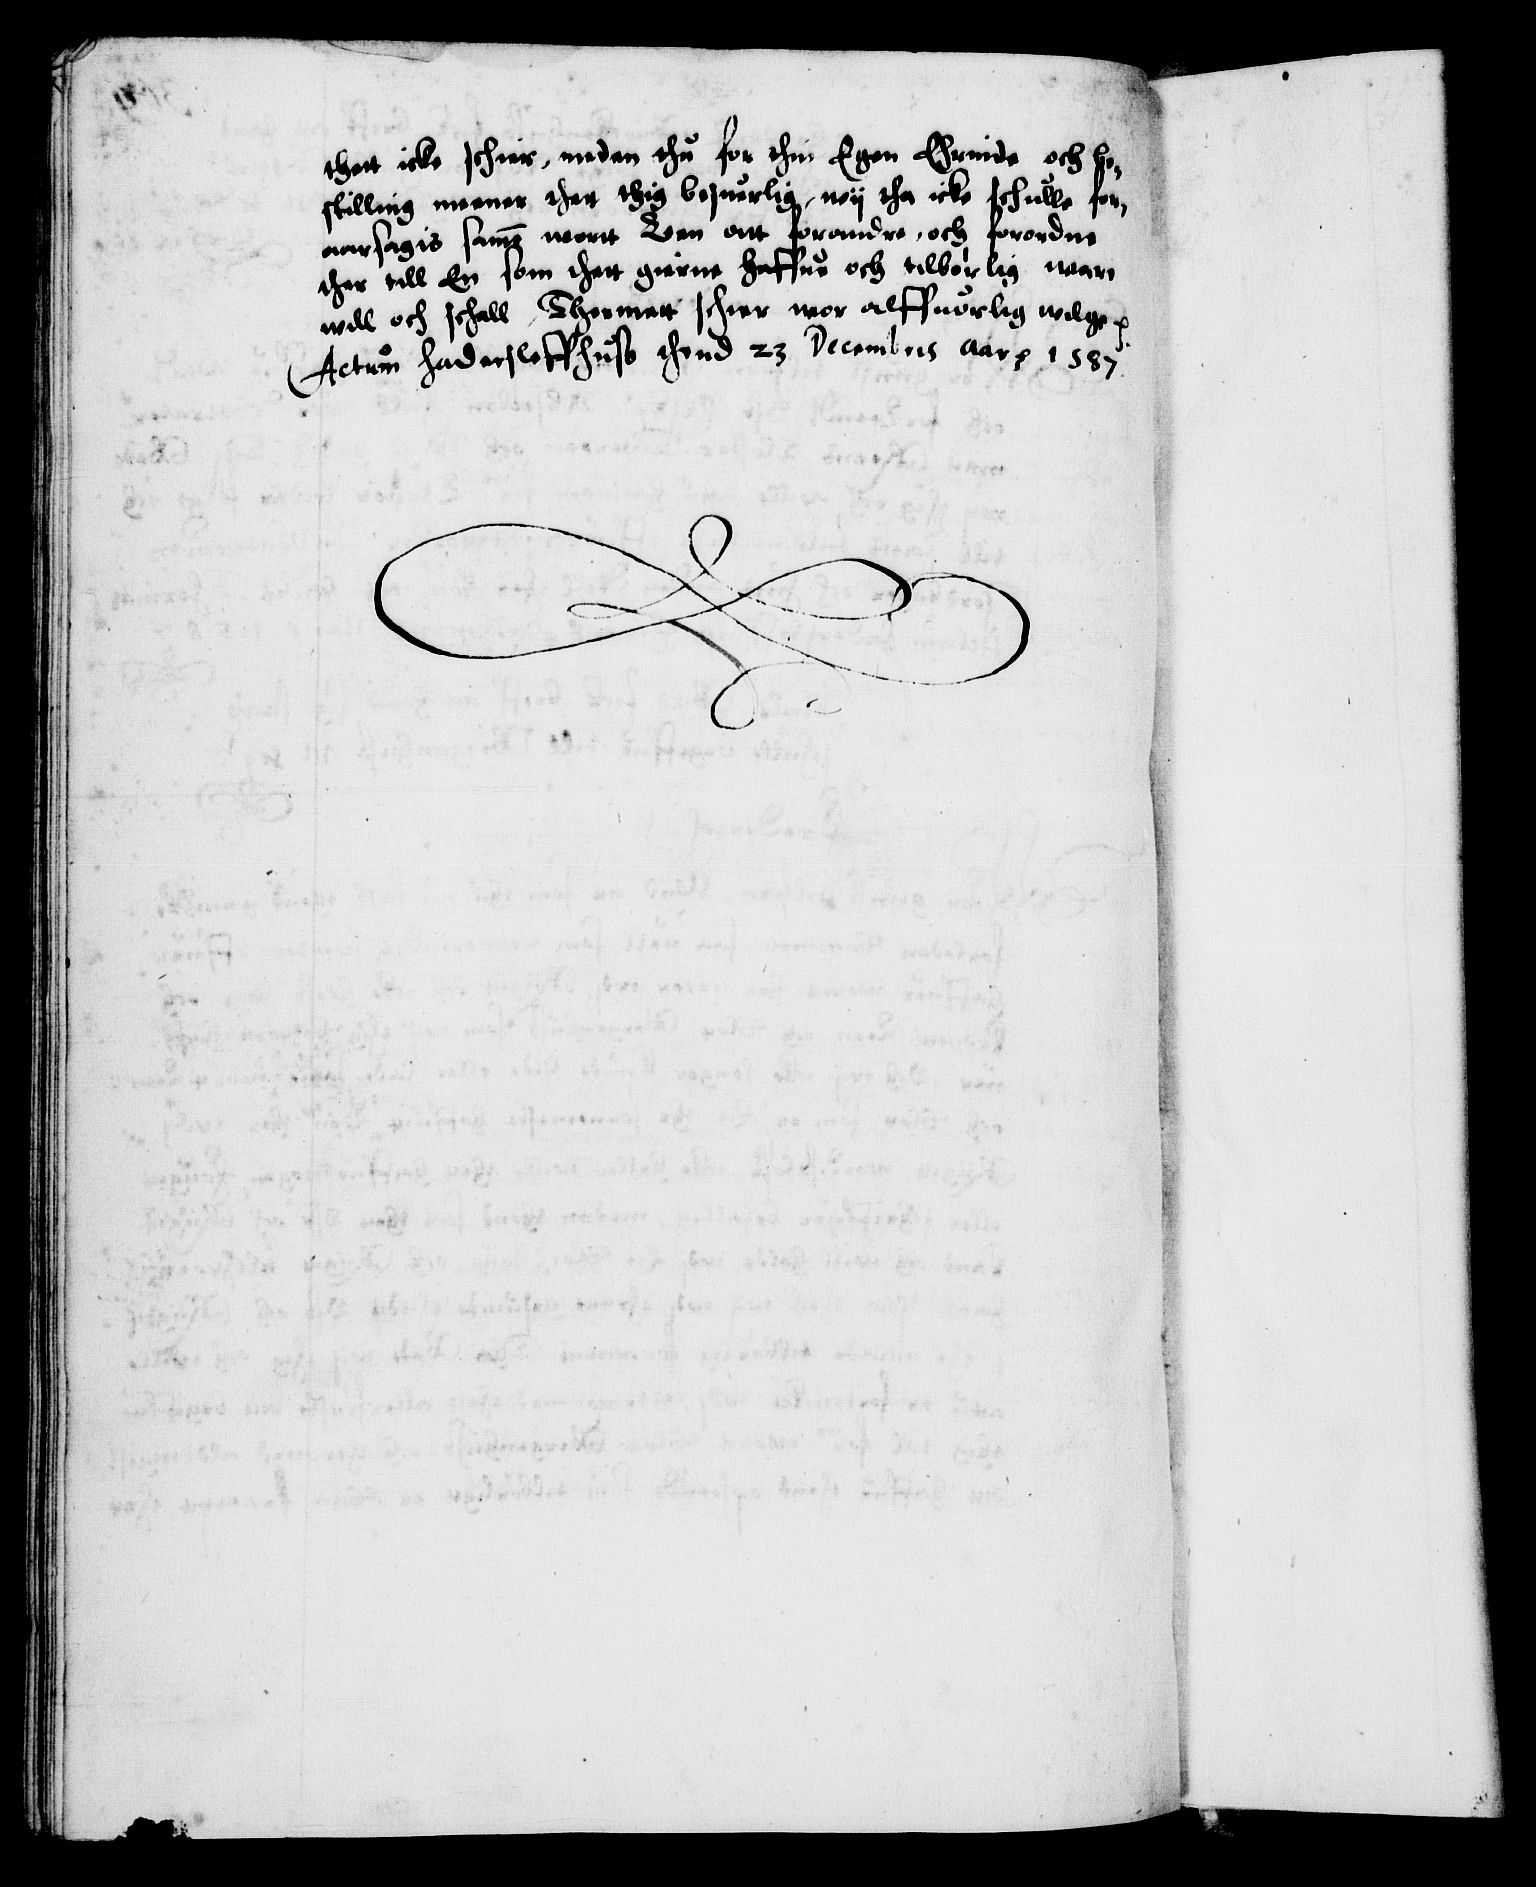 thett icke schier, meden thu for thin Egen Ehrinde och be-
stilling meener thett thig besuerlig, wij tha icke schulle for-
aarsagis samme wortt Leen att forandre, och forordne
ther till En som thett gierne haffue och tilbørlig ware
will och schall, Thermett scher wor alffuorlig welge p.
Actum haderslefhuss thend 23 Decembris Aar p 1587